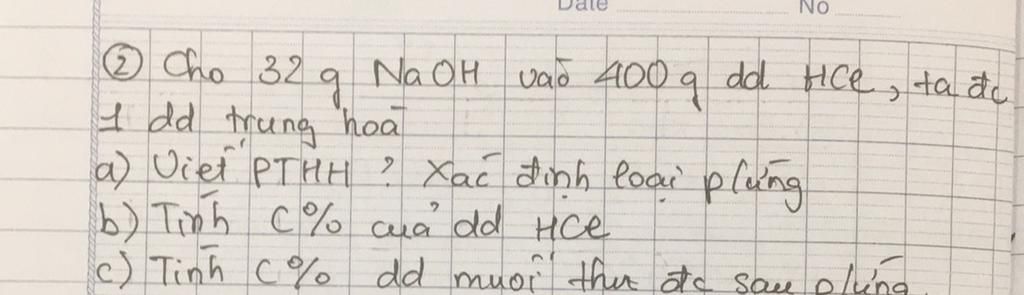 Date No
② Cho 32 g NaOH vào 400 g dd HCl, ta đc
1 dd trung hoà
a) Viết PTHH ? Xác định loại p/ứng
b) Tính C% của dd HCl
c) Tính C% dd muối thu đc sau p/ứng